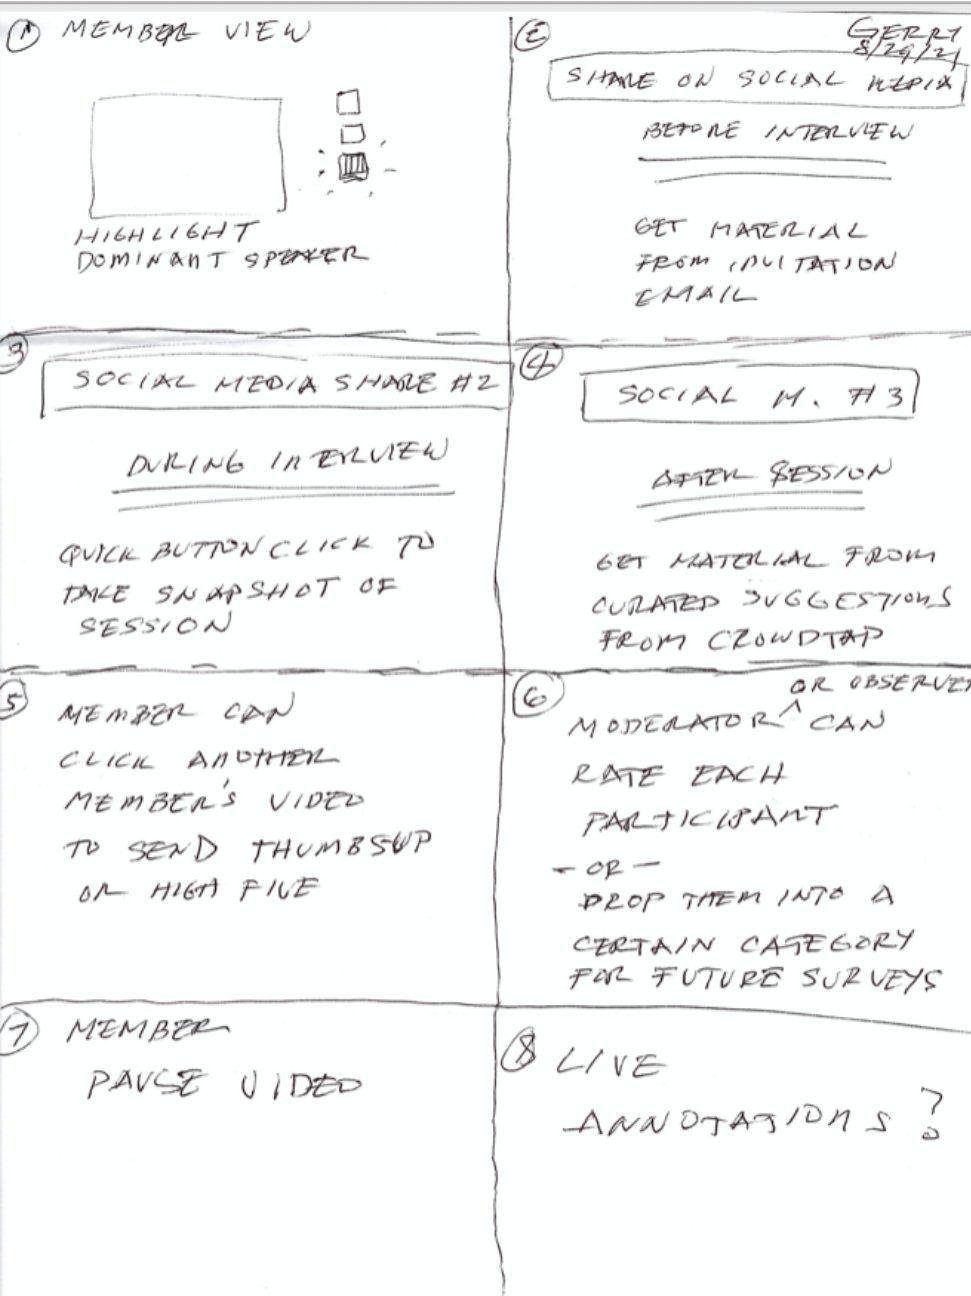 1 MEMBER VIEW
HIGHLIGHT
DOMINANT SPEAKER
2
GERRY
8/29/21
SHARE ON SOCIAL MEDIA
BEFORE INTERVIEW
GET MATERIAL
FROM INVITATION
EMAIL
3
SOCIAL MEDIA SHARE #2
DURING INTERVIEW
QUICK BUTTON CLICK TO
TAKE SNAPSHOT OF
SESSION
4
SOCIAL M. #3
AFTER SESSION
GET MATERIAL FROM
CURATED SUGGESTIONS
FROM CROWDTAP
5
MEMBER CAN
CLICK ANOTHER
MEMBER'S VIDEO
TO SEND THUMBSUP
OR HIGH FIVE
6
OR OBSERVER
MODERATOR ^ CAN
RATE EACH
PARTICIPANT
- OR -
DROP THEM INTO A
CERTAIN CATEGORY
FOR FUTURE SURVEYS
7 MEMBER
PAUSE VIDEO
8 LIVE
ANNOTATIONS?